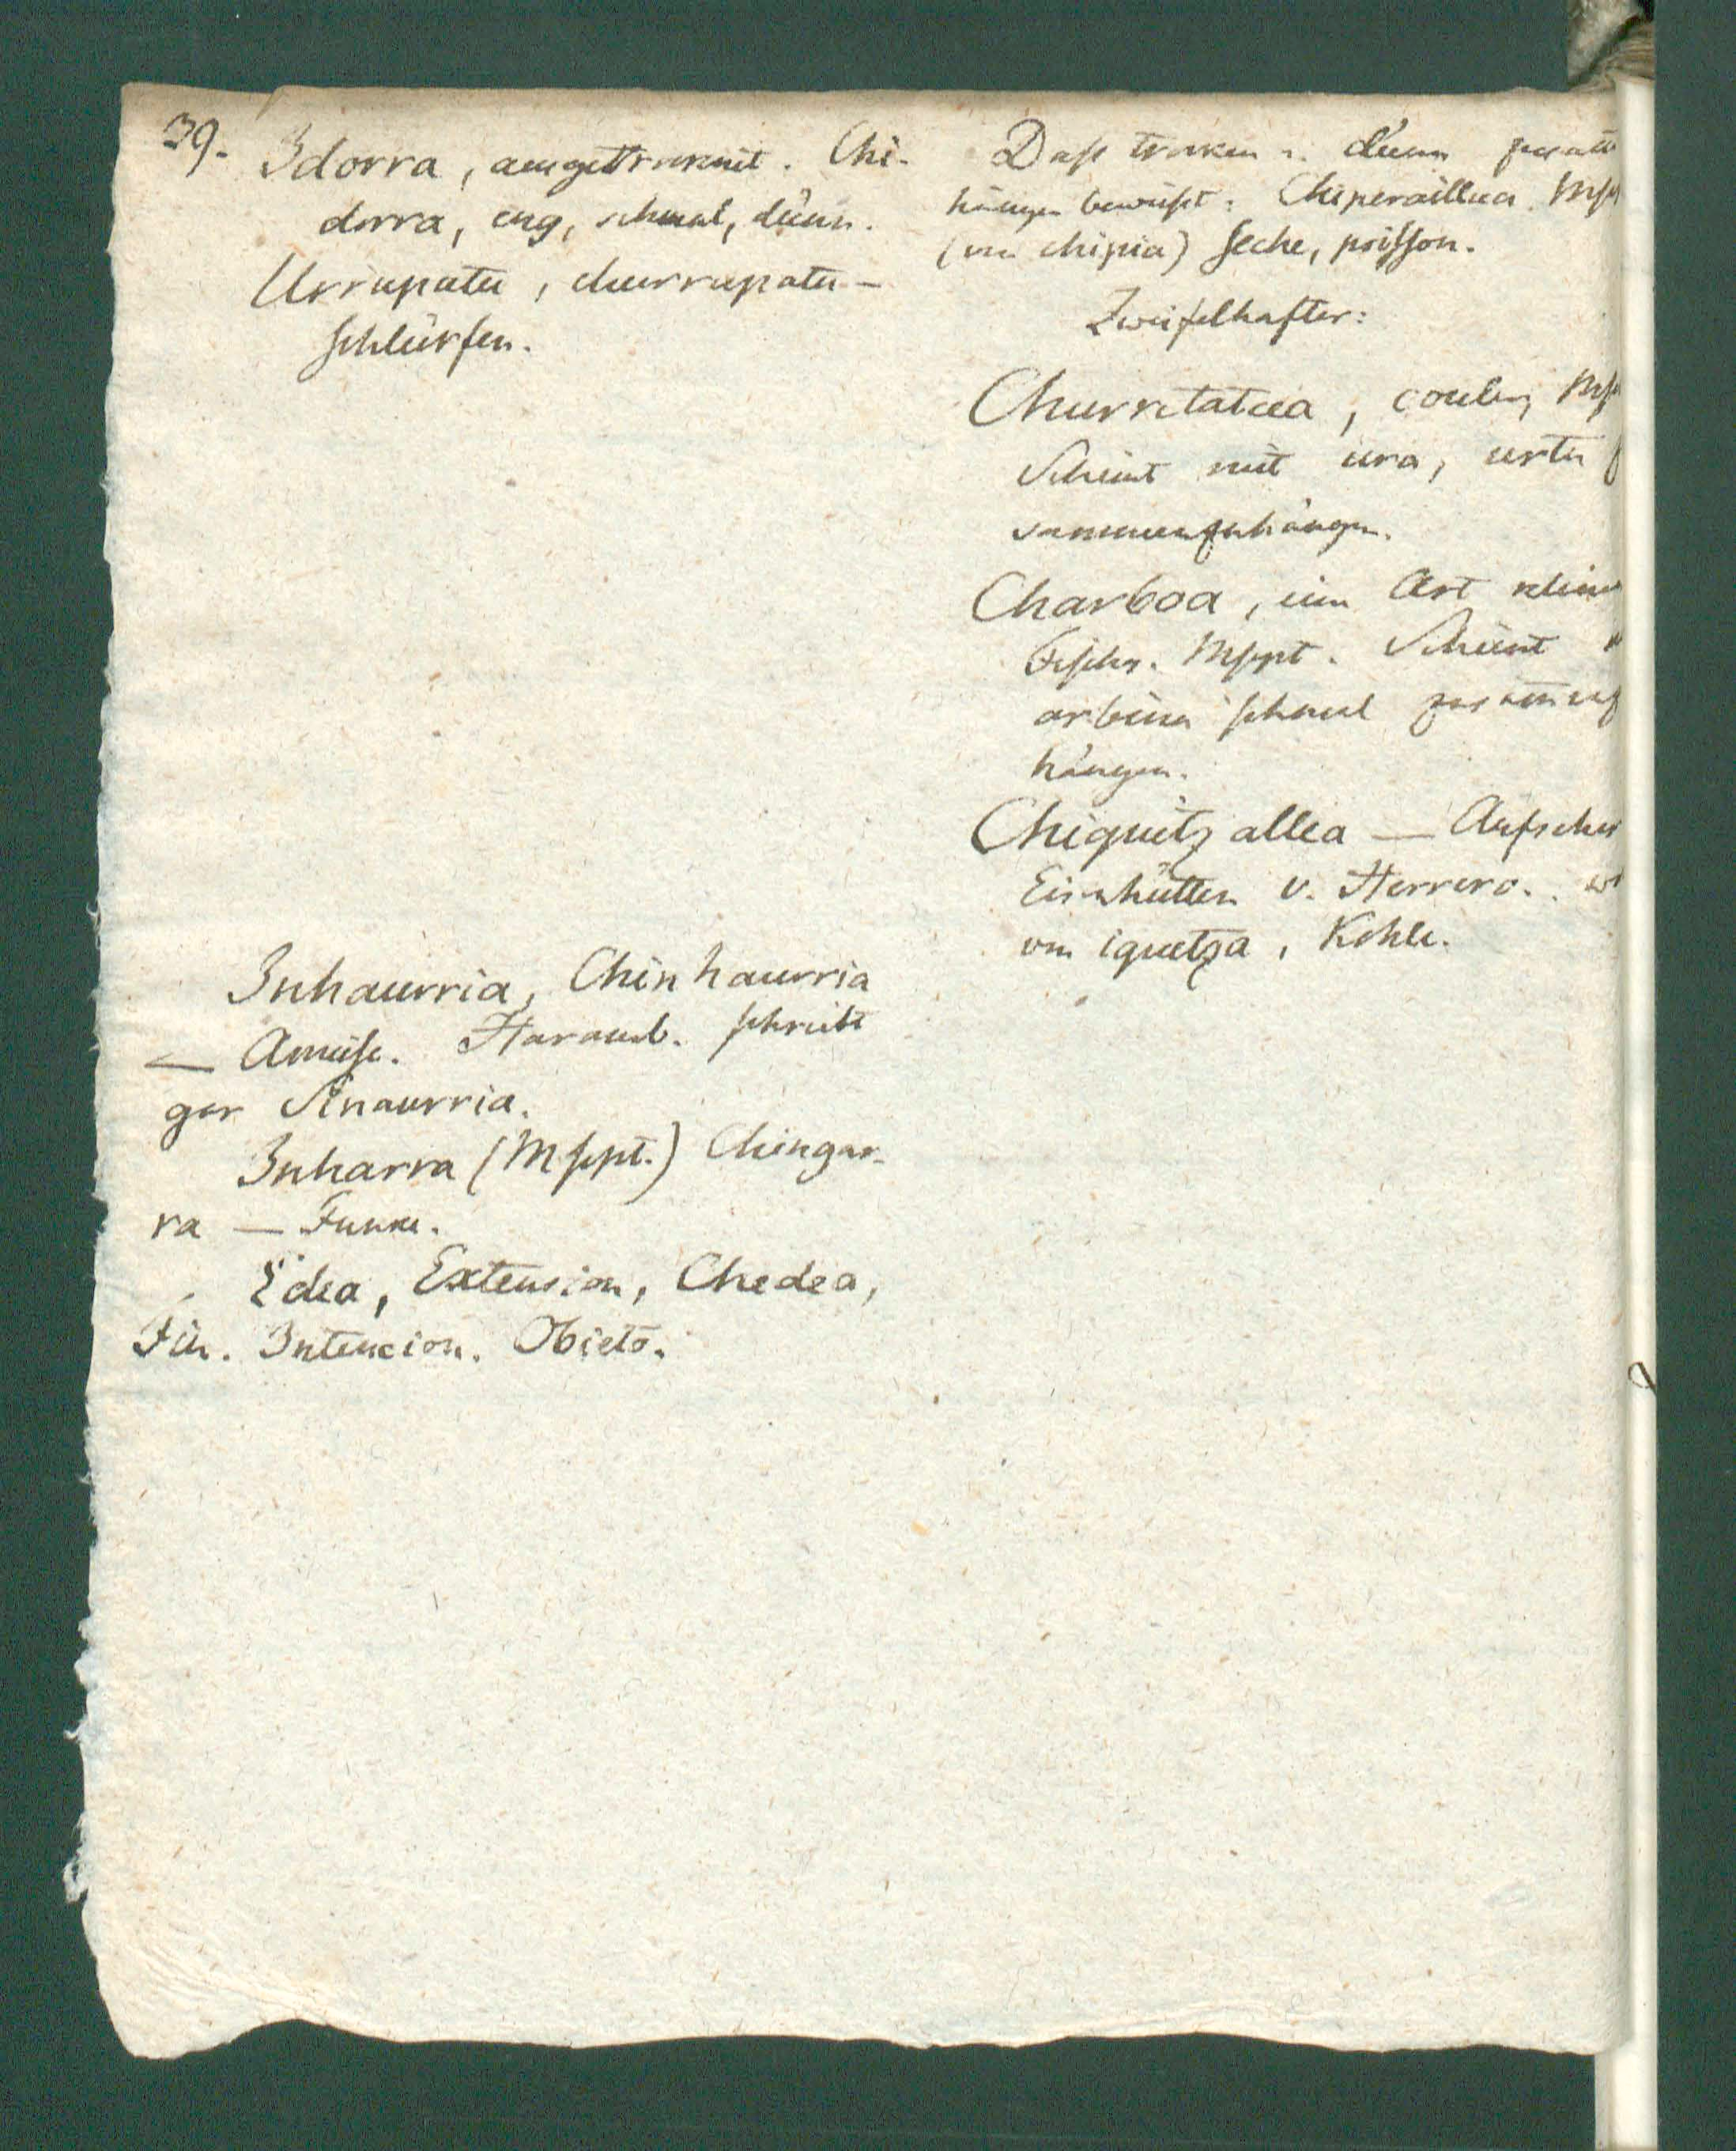 39.
Idorra, ausgetroknet. Chi-
dorra, eng, schmal, dünn.
Urrupatu, churrupatu –
schlürfen.
Inhaurria, Chinhaurria
— Ameise. Haramb. schreibt
gar Anaurria.
Inharra (Mspt.) Chingar-
ra — Funke.
Edea, Extension, Chedea,
Fin. Intencion. Obieto.
Daß troken u. dünn
hängen beweist: Chiperaillua
(von chipia) Seche, poisson.
Zweifelhafter:
Churrutatua, couler,
Scheint mit ura, urtu
sammenzuhängen.
Charboa, eine Art kleine
Fische. Mspt. Scheint
arbina schmal
hängen.
Chiquitz allea —
Eisenhütten v. Herrero.
von iquetza, Kohle.